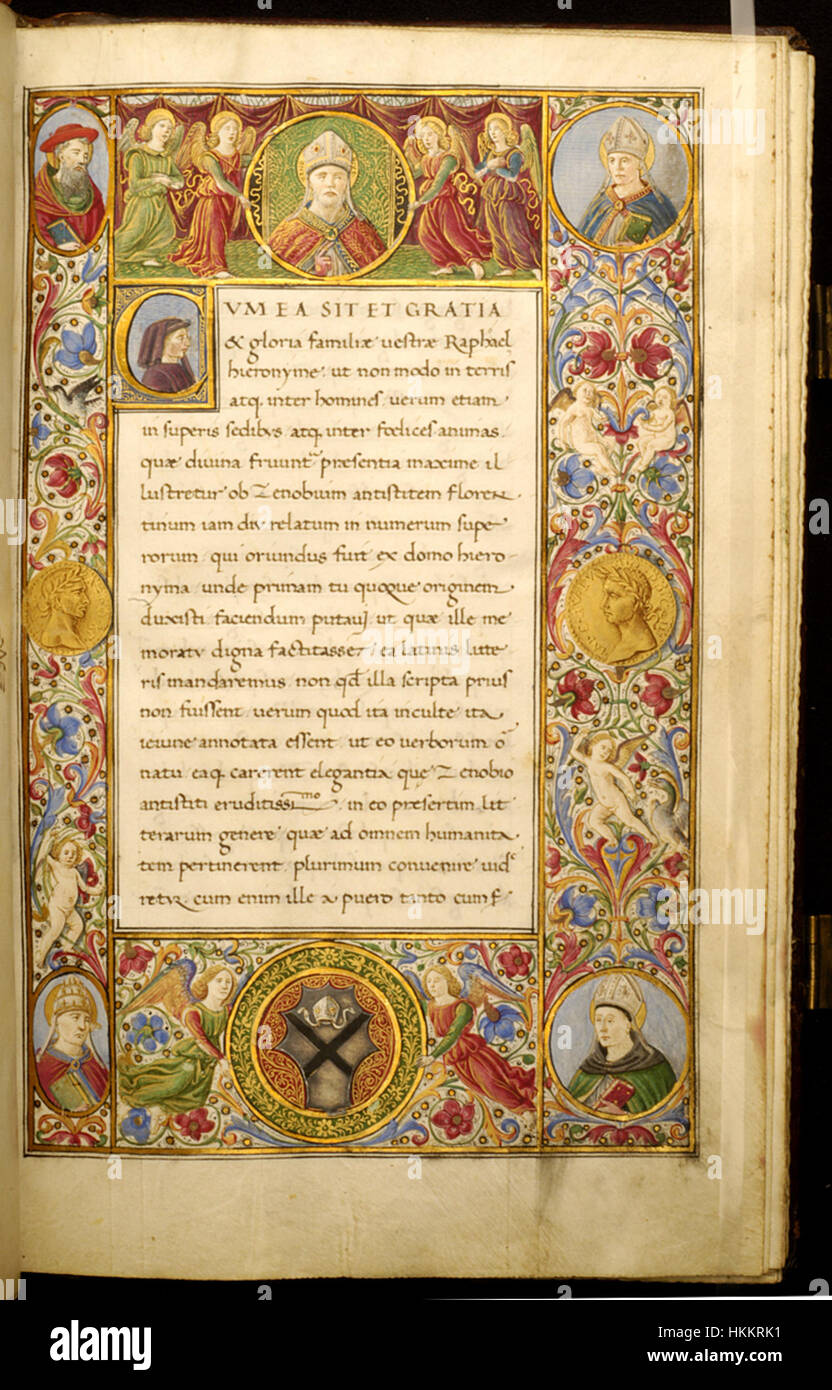 CVM EA SIT ET GRATIA
& gloria familiæ uestræ Raphael
hieronyme, ut non modo in terris
atq, inter homines, verum etiam
in superis sedibus atq, inter fœlices animas,
quæ divina fruunt præsentia maxime il
lustretur ob Zenobium antistitem floren
tinum iam diu relatum in numerum supe
rorum, qui oriundus fuit ex domo hiero
nyma, unde primam tu quoque originem
duxisti faciendum putavi, ut quæ ille me
moratu digna factitasset, ea latinis litte
ris mandaremus, non qđ illa scripta prius
non fuissent, uerum quod ita inculte ita
ieiune annotata essent, ut eo verborum o
natu, eaq, carerent elegantia, que Zenobio
antistiti eruditissimo, in eo præsertim lit
terarum genere, quæ ad omnem humanita
tem pertinerent, plurimum convenire uid
retur, cum enim ille a puero tanto cum f
alamy stock photo
alamy
Image ID: HKKRK1
www.alamy.com